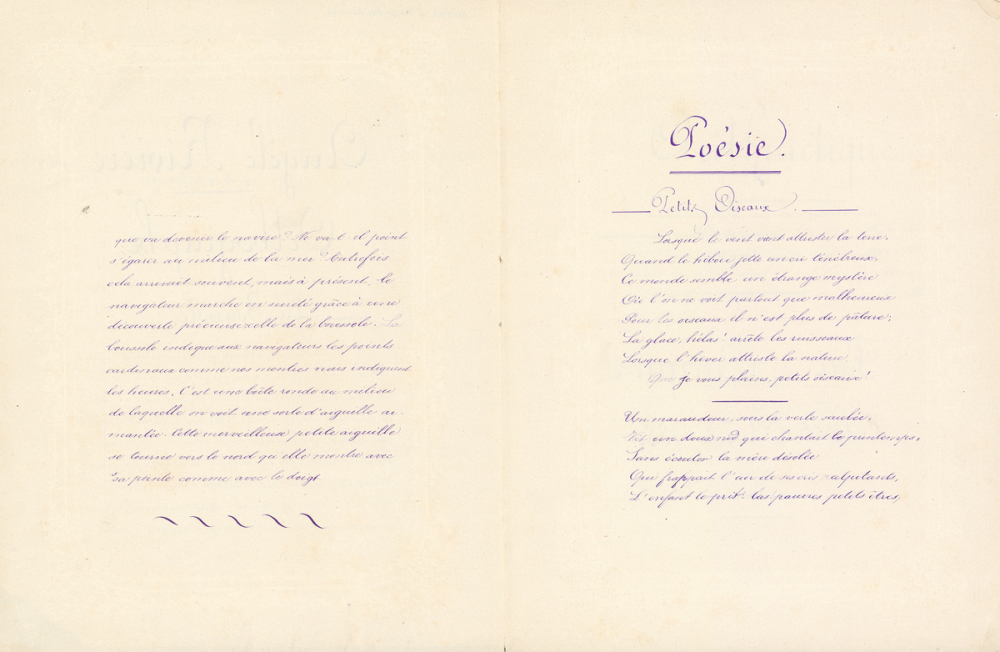 que va devenir le navire? Ne va t-il point
s'égarer au milieu de la mer? Autrefois
cela arrivait souvent, mais à présent, le
navigateur marche en sureté grâce à une
découverte précieuse: celle de la boussole. La
boussole indique aux navigateurs les points
cardinaux comme nos montres nous indiquent
les heures. C'est une boîte ronde au milieu
de laquelle on voit une sorte d'aiguille ai-
mantée. Cette merveilleuse petite aiguille
se tourne vers le nord qu'elle montre avec
sa pointe comme avec le doigt
Poésie.
Petits Oiseaux.
Lorsque le vent vient attrister la terre,
Quand le hibou jette un cri ténébreux,
Le monde semble un étrange mystère
Où l'on ne voit partout que malheureux
Pour les oiseaux il n'est plus de pâture;
La glace, hélas! arrête les ruisseaux
Lorsque l'hiver attriste la nature
Que je vous plains, petits oiseaux!
Un maraudeur, sous la verte saulée,
Vit un doux nid que chantait le printemps,
Sans écouter la mère désolée
Qui frappait l'air de ses cris
L'enfant le prit: las pauvres petits êtres,